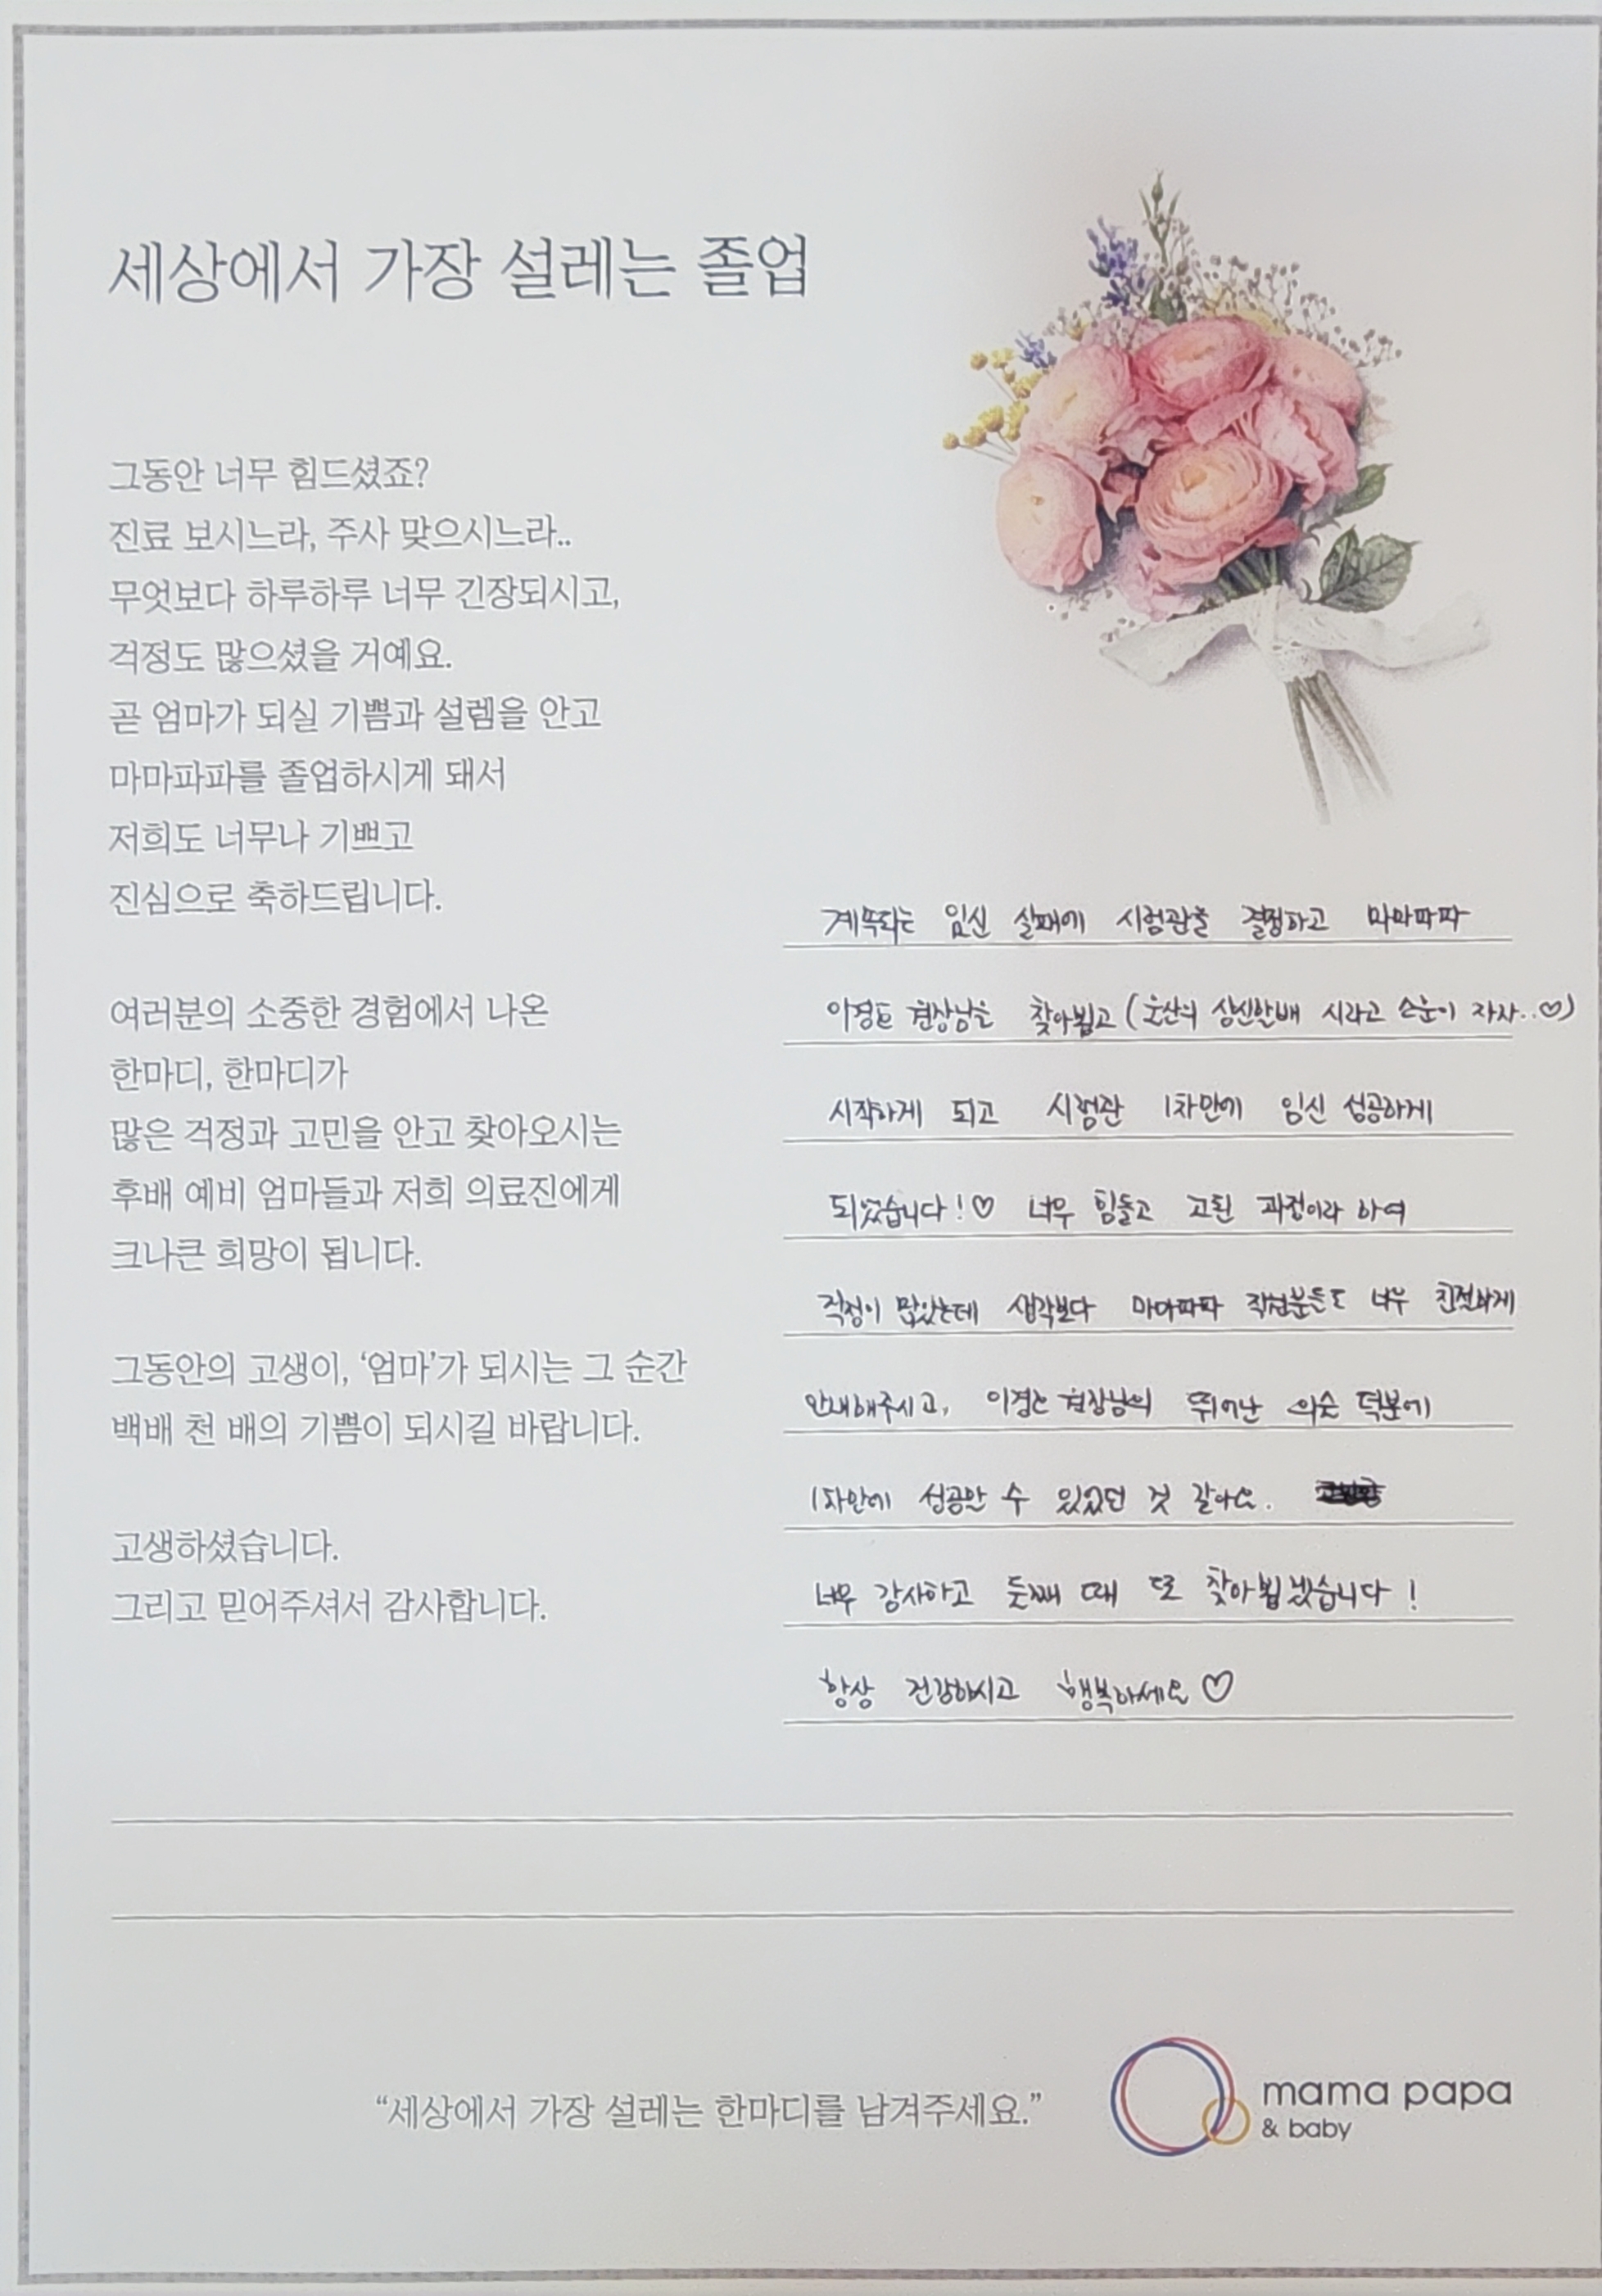 세상에서 가장 설레는 졸업
그동안 너무 힘드셨죠?
진료 보시느라, 주사 맞으시느라..
무엇보다 하루하루 너무 긴장되시고,
걱정도 많으셨을 거예요.
곧 엄마가 되실 기쁨과 설렘을 안고
마마파파를 졸업하시게 돼서
저희도 너무나 기쁘고
진심으로 축하드립니다.
여러분의 소중한 경험에서 나온
한마디, 한마디가
많은 걱정과 고민을 안고 찾아오시는
후배 예비 엄마들과 저희 의료진에게
크나큰 희망이 됩니다.
그동안의 고생이, ‘엄마’가 되시는 그 순간
백배 천 배의 기쁨이 되시길 바랍니다.
고생하셨습니다.
그리고 믿어주셔서 감사합니다.
계속되는 임신 실패에 시험관을 결정하고 마마파파
원장님을 찾아뵙고 (울산의 삼신할배 시라고 소문이 자자..♡)
시작하게 되고 시험관 1차만에 임신 성공하게
되었습니다!♡ 너무 힘들고 고된 과정이라 하여
걱정이 많았는데 생각보다 마마파파 직원분들도 너무 친절하게
안내해주시고, 원장님의 뛰어난 의술 덕분에
1차만에 성공할 수 있었던 것 같아요.
너무 감사하고 둘째 때 또 찾아뵙겠습니다!
항상 건강하시고 행복하세요♡
“세상에서 가장 설레는 한마디를 남겨주세요.”
mama papa
& baby